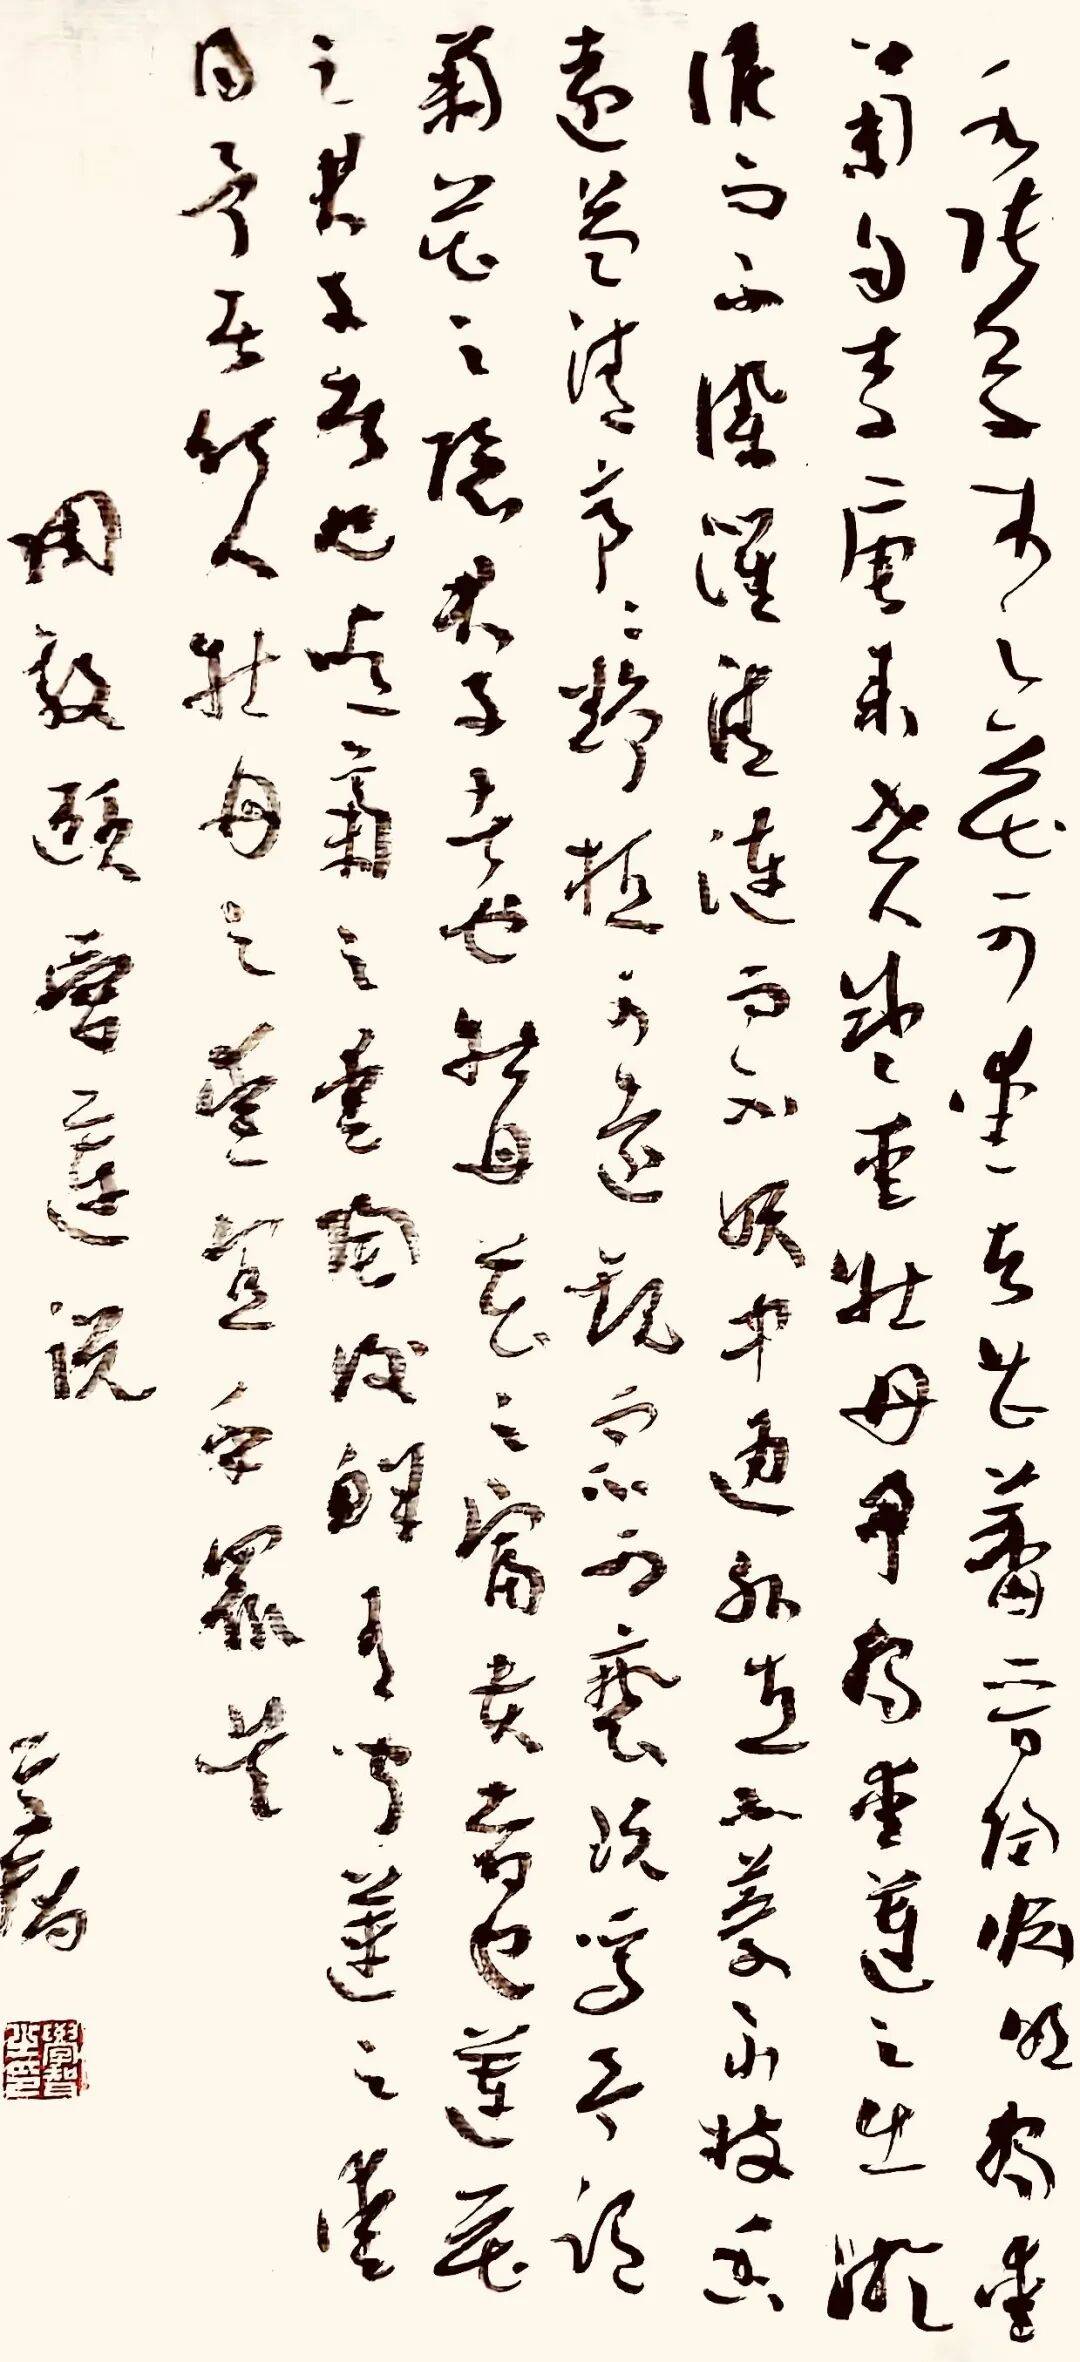 水陸草木之花可愛者甚蕃晉陶淵明獨愛
菊自李唐來世人盛愛牡丹予獨愛蓮之出淤
泥而不染濯清漣而不妖中通外直不蔓不枝香
遠益清亭〻靜植可遠觀而不可褻玩焉予謂
菊花之隱君子者也牡丹花之富貴者也蓮花
之君子者也噫菊之愛陶後鮮有聞蓮之愛
同予者何人牡丹之愛宜乎眾矣
周敦頤愛蓮說